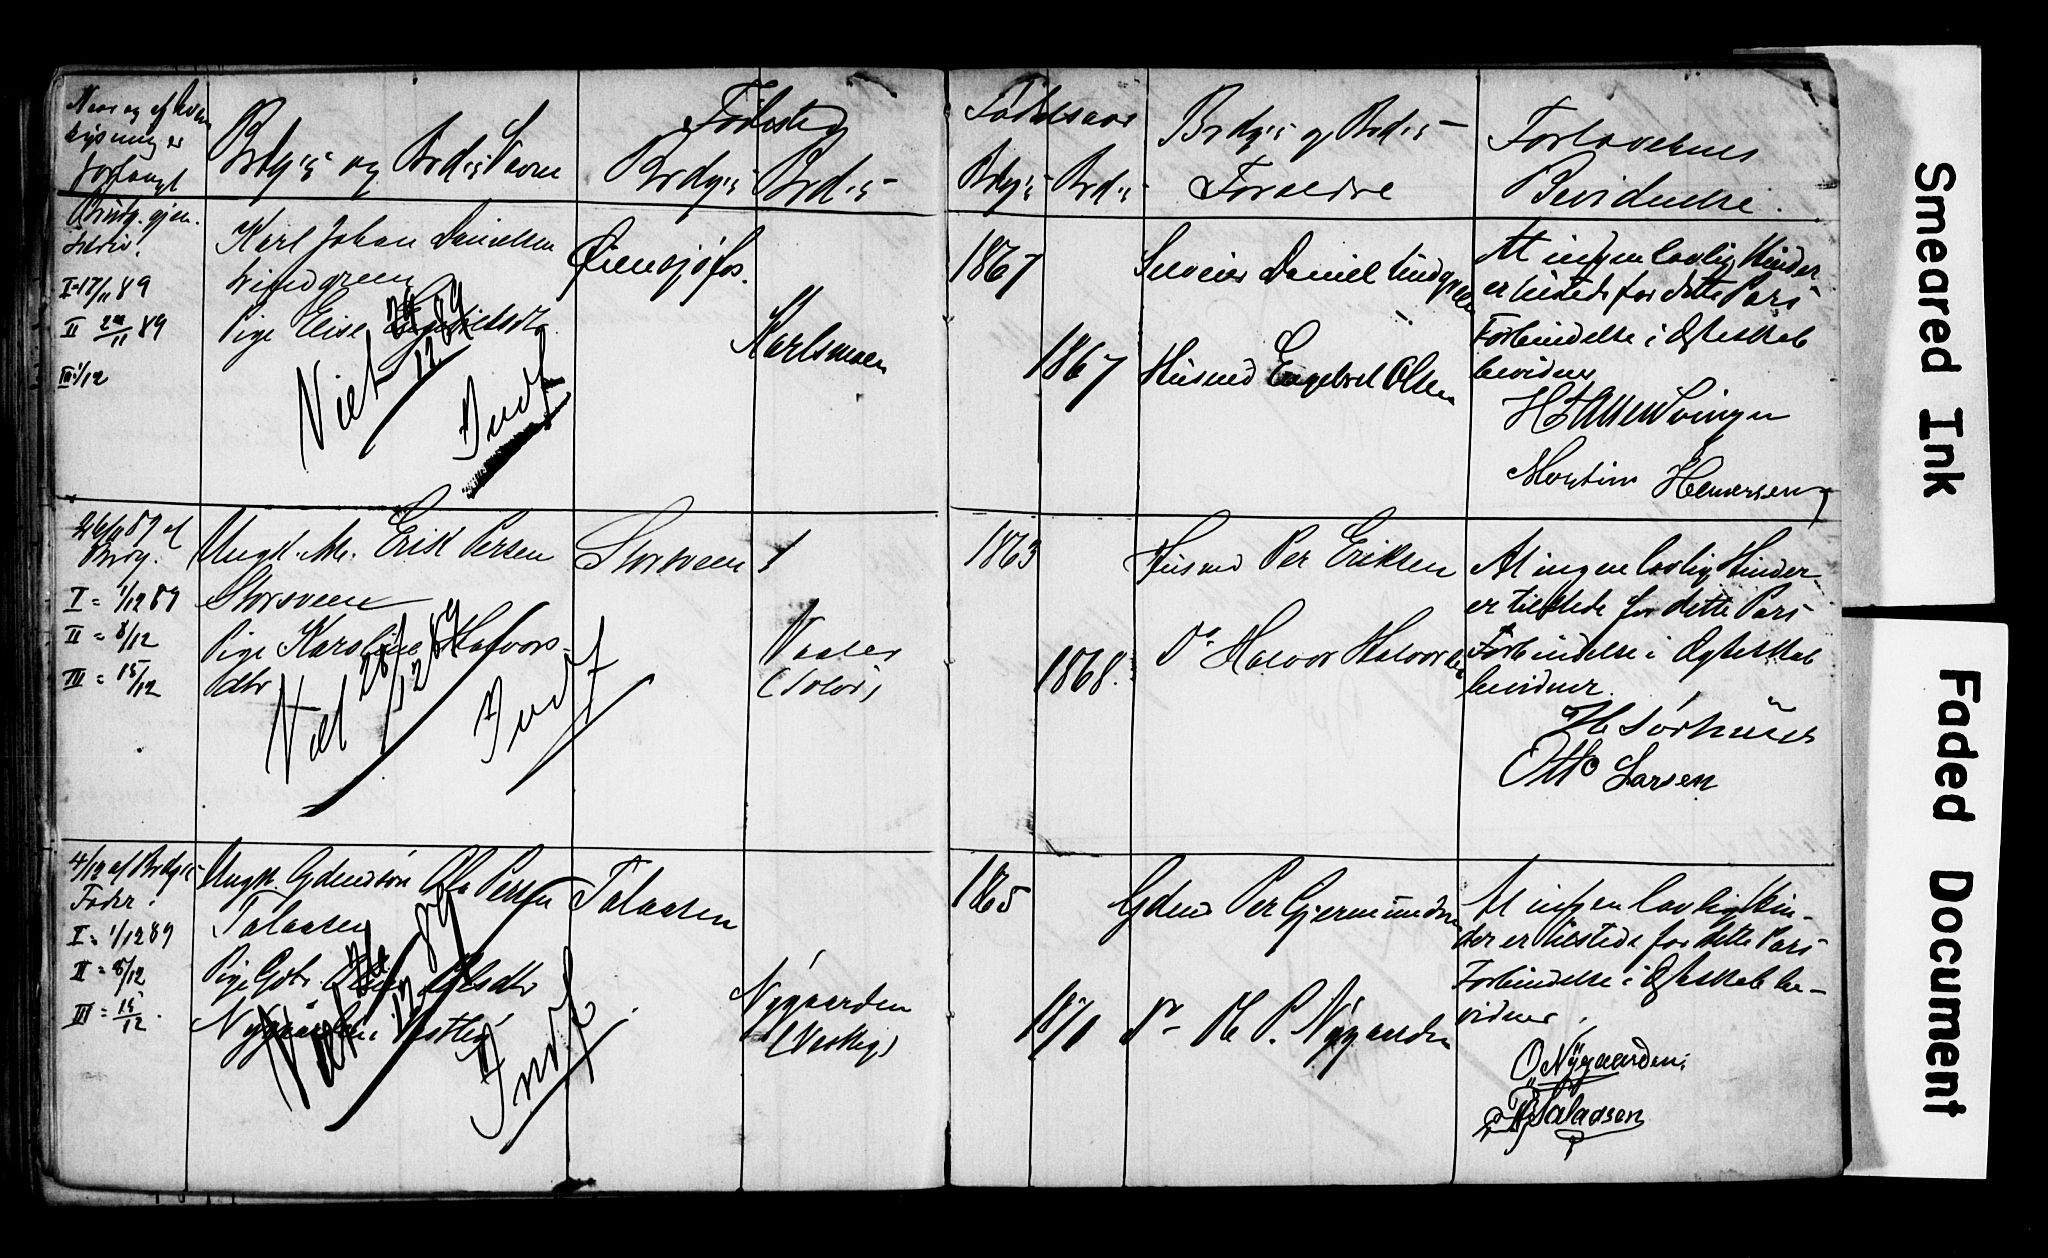 Naar og af hvem
Lysning er
forlangt
Brdg's og Brd's Navn
Fødested
Brdg's
Brd's
Fødselsaar
Brdg's
Brd's
Brdg's og Brd's
Forældre
Forlovernes
Bevidnelse.
I 17/11 89
II 24/11 89
III 1/12
Karl Johan Danielsen
Lindgreen
Pige Elise
Viet
Indf
Øiensjøfos.
Karlsmoen
1867
1867
Daniel Lindgreen
Husmd Engebret Olsen
At ingen lovlig Hinder
er tilstede for dette Pars
Forbindelse i Ægteskab
bevidner
Martin
26/11 89 af
Brdg.
I = 1/12 89
II = 8/12
III = 15/12
Ungk. Erik Persen
Storsveen
Pige Karoline Halvors-
dtr
Viet 28/12 89
Indf
Storsveen
Vaaler
(Solør)
1863
1868.
Husmd Per Eriksen
Do Halvor Halvorsen
At ingen lovlig Hinder
er tilstede for dette Pars
Forbindelse i Ægteskab
bevidner.
H Sørhuus
Otto Larsen
4/12 af Brdg's
Fader.
I = 1/12 89
II = 8/12
III = 15/12.
Ungk. Gdmdsøn Ole Persen
Talaasen
Pige Gdtr Olsdtr
Nygaarden Vestby
Viet 89
Indf
Talaasen
Nygaarden
(Vestby)
1865
1871
Gdmd Per Gjermundsen
Do O. P. Nygaarden
At ingen lovlig Hin-
der er tilstede for dette Pars
Forbindelse i Ægteskab be-
vidner.
O Nygaarden
Talaasen
Smeared Ink
Faded Document